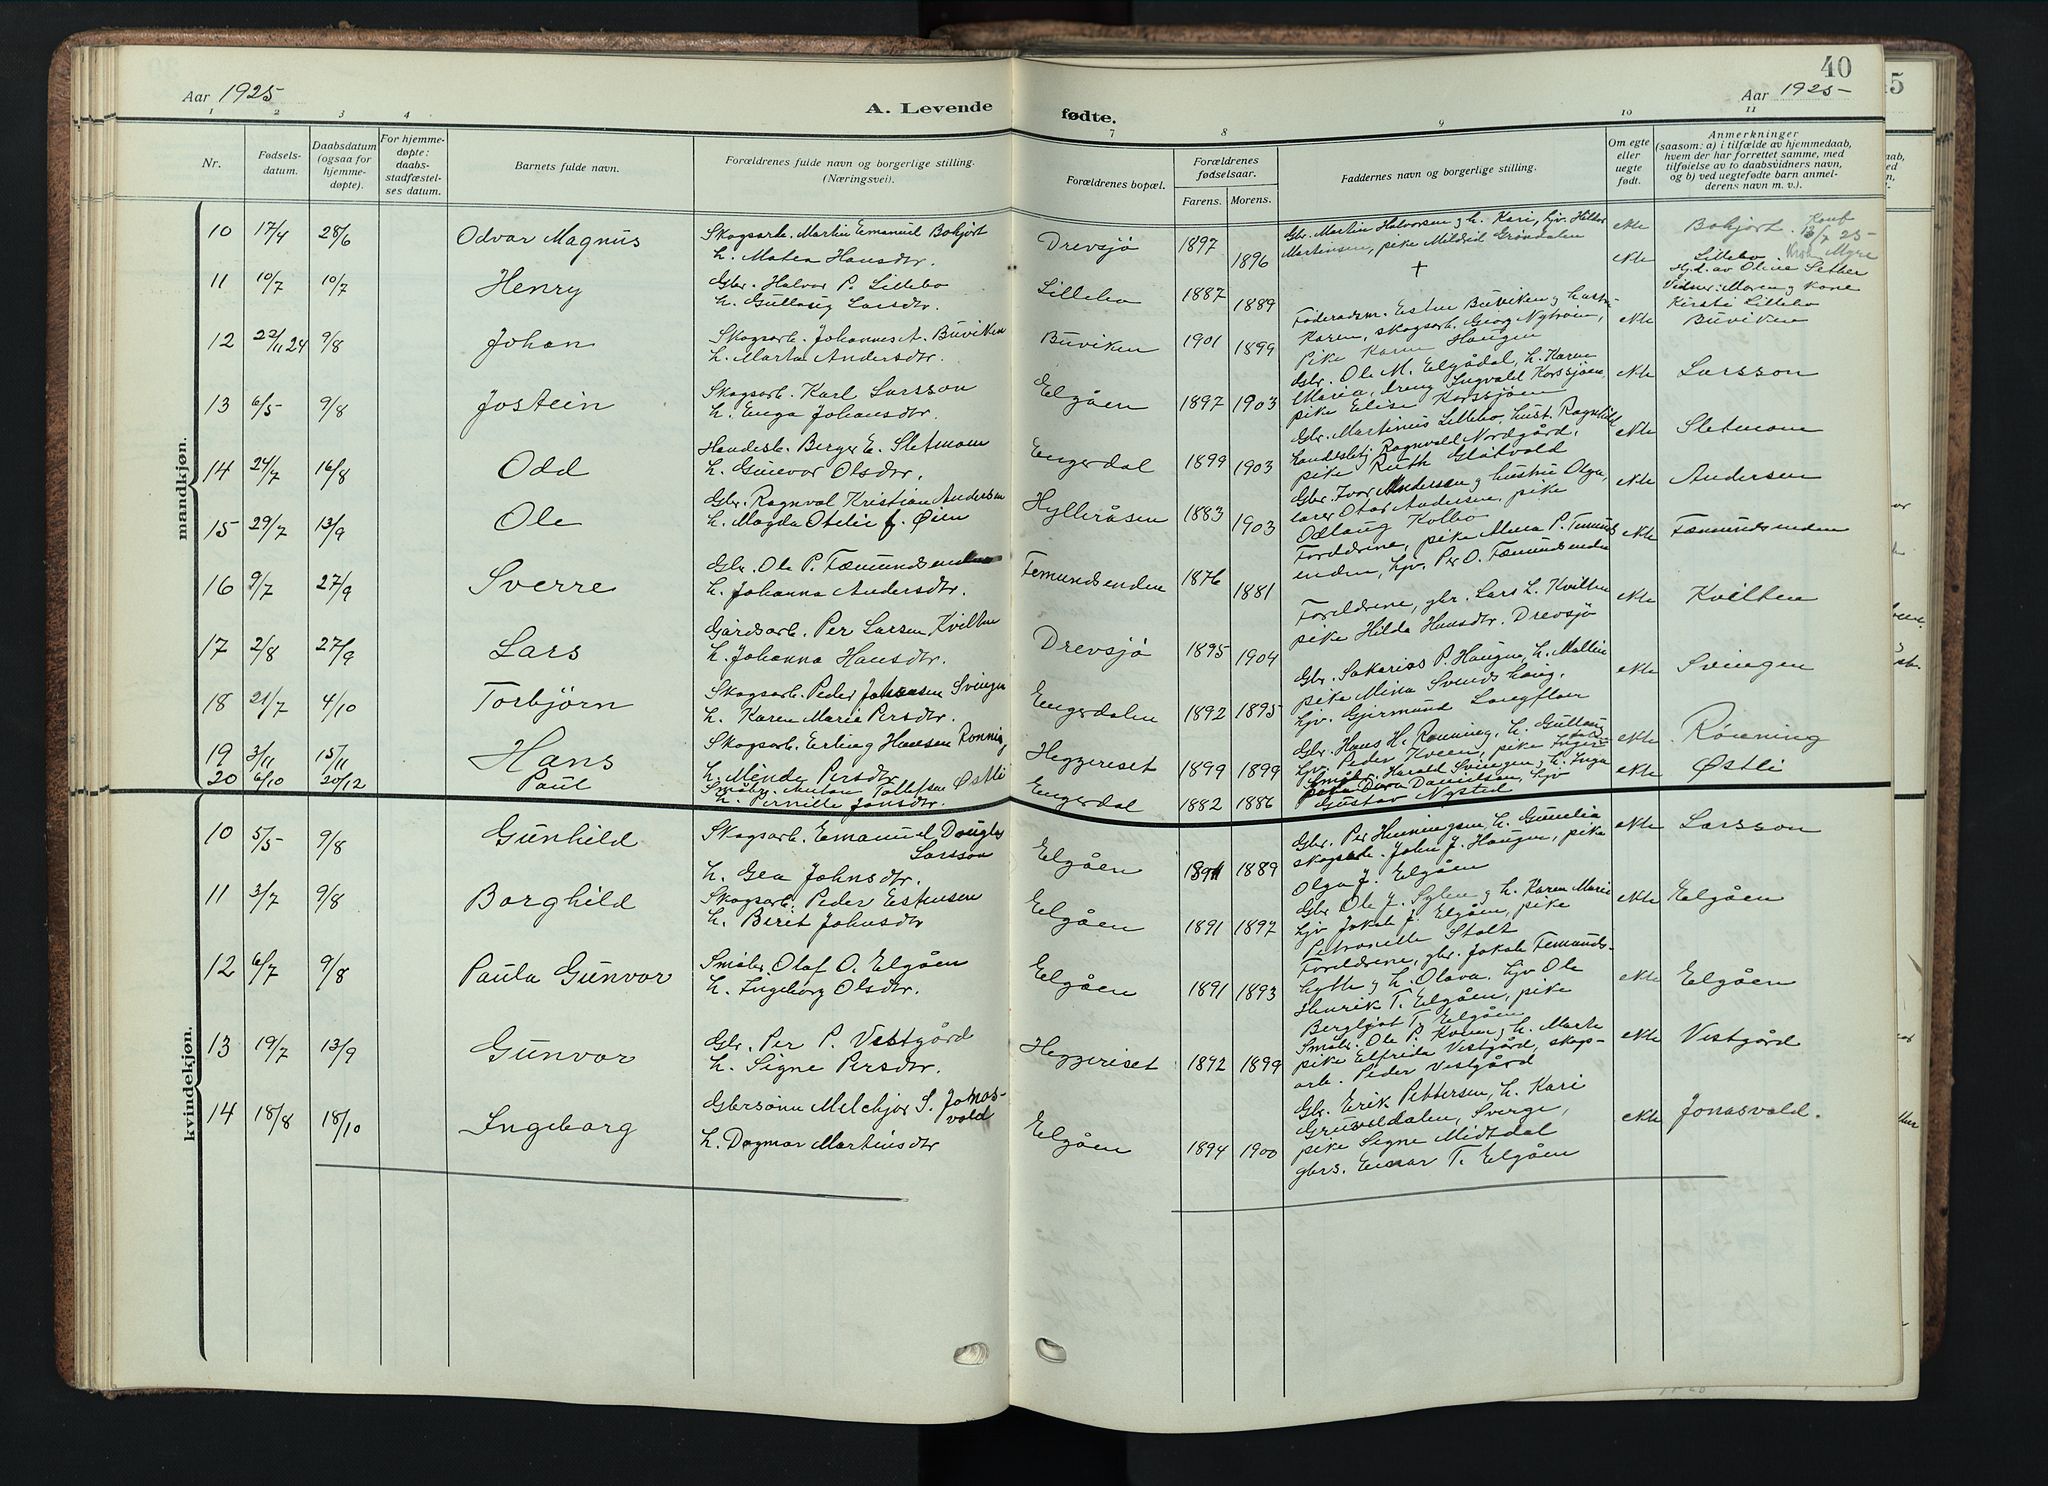 40
Aar 1925
A. Levende
fødte.
Aar 1925
1 2 3 4 7 8 9 10 11
Nr.
Fødsels-
datum.
Daabsdatum
(ogsaa for
hjemme-
døpte).
For hjemme-
døpte:
daabs-
stadfæstel-
ses datum.
Barnets fulde navn.
Forældrenes fulde navn og borgerlige stilling.
(Næringsvei).
Forældrenes bopæl.
Forældrenes
fødselsaar.
Farens. Morens.
Faddernes navn og borgerlige stilling.
Om egte
eller
uegte
født.
Anmerkninger
(saasom: a) i tilfælde av hjemmedaab,
hvem der har forrettet samme, med
tilføielse av to daabsvidners navn,
og b) ved uegtefødte barn anmel-
derens navn m. v.).
mandkjøn.
10 17/4 28/6 Odvar Magnus
Skogsarb. Martin Emanuel Bohjort
h. Matea Hansdtr.
Drevsjø 1897 1896
Gbr. Martin Halvorsen og h. Kari, hjv. Hilda
Martinsen, pike Mildrid Grøndalen
ekte Bohjort.
11 10/7 10/7 Henry
Gbr. Halvor P. Lillebo
h. Gullaug Larsdtr.
Lillebo 1887 1889
+
ekte Lillebo.
Hjd. av Oline Sether
Vidner: Moren og Kone
Kirsti Lillebo
12 22/11 24 9/8 Johan
Skogsarb. Johannes A. Buviken
h. Marta Andersdtr.
Buviken 1901 1899
Føderaadsm. Esten Buviken og hustru
Karen, skogsarb. Georg Nytrøen,
pike Karen Haugen
ekte Buviken
13 6/5 9/8 Jostein
Skogsarb. Karl Larsson
h. Enga Johansdtr.
Elgåen 1897 1903
Gbr. Ole M. Elgådal, h. Karen
Maria, dreng Ingvald Korssjøen,
pike Elise Korssjøen
ekte Larsson
14 24/7 16/8 Odd
Handesb. Berger E. Sletmoen
h. Gunvor Olsdtr.
Engerdal 1899 1903
Gbr. Martinus Lillebo, hust. Ragnhild
handelsbtj. Ragnvald Nordgård,
pike Ruth Gløtvold
ekte Sletmoen
15 29/7 13/9 Ole
Gbr. Ragnval Kristian Andersen
h. Magda Otelie f. Øien
Hylleråsen 1883 1903
Gbr. Ivar Andersen og hustru Olga,
lærer Otar Andersen, pike
Odlaug Kolbo
ekte Andersen
16 9/7 27/9 Sverre
Gbr. Ole P. Fæmundsenden
h. Johanna Andersdtr.
Femundsenden 1876 1881
Foreldrene, pike Mina P. Femunds-
enden, hjv. Per O. Fæmundsenden
ekte Fæmundsenden
17 2/8 27/9 Lars
Gårdsarb. Per Larsen Kvilten
h. Johanna Hansdtr.
Drevsjø 1895 1904
Foreldrene, gbr. Lars L. Kvilten
pike Hilda Hansdtr. Drevsjø
ekte Kvilten
18 21/7 4/10 Torbjörn
Skogsarb. Peder Johansen Svingen
h. Karen Marie Persdtr.
Engerdalen 1892 1895
Gbr. Sakarias P. Haugen, h. Mallin
pike Mina Svendshaug,
hjv. Gjermund Langfloen
ekte Svingen
19 3/11 15/11 Hans
Skogsarb. Erling Hansen Rønning
h. Minda Persdtr
Heggeriset 1899 1899
Gbr. Hans H. Rønning, h. Gullaug
hjv. Peder Kveen, pike Inger
ekte Rønning
20 6/10 20/12 Paul
Småbr. Anton Tollefsen Østli
h. Pernille Jonsdtr.
Engerdal 1882 1886
Småbr. Harald Svingen, h. Inga
pike Dora Danielsen, hjv
Gustav Nysted
ekte Østli
kvindekjøn.
10 5/5 9/8 Gunhild
Skogsarb. Emanuel Douglas
Larsson
h. Gea Johnsdtr.
Elgåen 1891 1889
Gbr. Per Henningsen, h. Gunelia
skogsarb. John J. Haugen, pike
Olga J. Elgåen
ekte Larsson
11 3/7 9/8 Borghild
Skogsarb. Peder Estensen
h. Berit Johnsdtr
Elgåen 1891 1897
Gbr. Ole J. Sylen og h. Karen Marie
hjv Jakob J. Elgåen, pike
Petronelle Stolt
ekte Elgåen
12 6/7 9/8 Paula Gunvor
Småbr. Olaf O. Elgåen
h. Ingeborg Olsdtr.
Elgåen 1891 1893
Foreldrene, gbr. Jakob Femunds-
hytte og h. Olava. hjv Ole
Henrik T. Elgåen, pike
Bergljot T. Elgåen
ekte Elgåen
13 19/7 13/9 Gunvor
Gbr. Per P. Vestgård
h. Signe Persdtr.
Heggeriset 1892 1899
Småbr. Ole P. Kveen og h. Marte
pike Elfrida Vestgård, skogs-
arb. Peder Vestgård
ekte Vestgård
14 18/8 18/10 Ingeborg
Gbrsønn Melchjor S. Jonas-
vold
h. Dagmar Martinsdtr
Elgåen 1894 1900
Gbr. Erik Pettersen, h. Kari
Gruveldalen, Sverge,
pike Signe Midtdal
gbrs. Einar T. Elgåen
ekte Jonasvold.